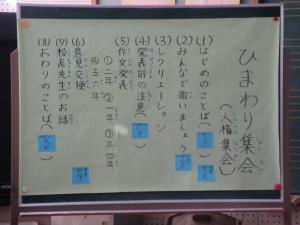 ひまわり集会
(人権集会)
(1)はじめのことば
(2)みんなで歌いましょう
(3)レクリエーション
(4)発表前の注意
(5)作文発表
①二年 ②一年 ③三、四年
④五、六年
(6)意見交換
(7)校長先生のお話
(8)おわりのことば